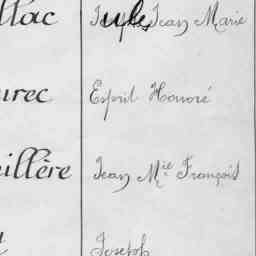 llac Jules Jean Marie
urec Esprit Honoré
illère Jean Mie François
Joseph